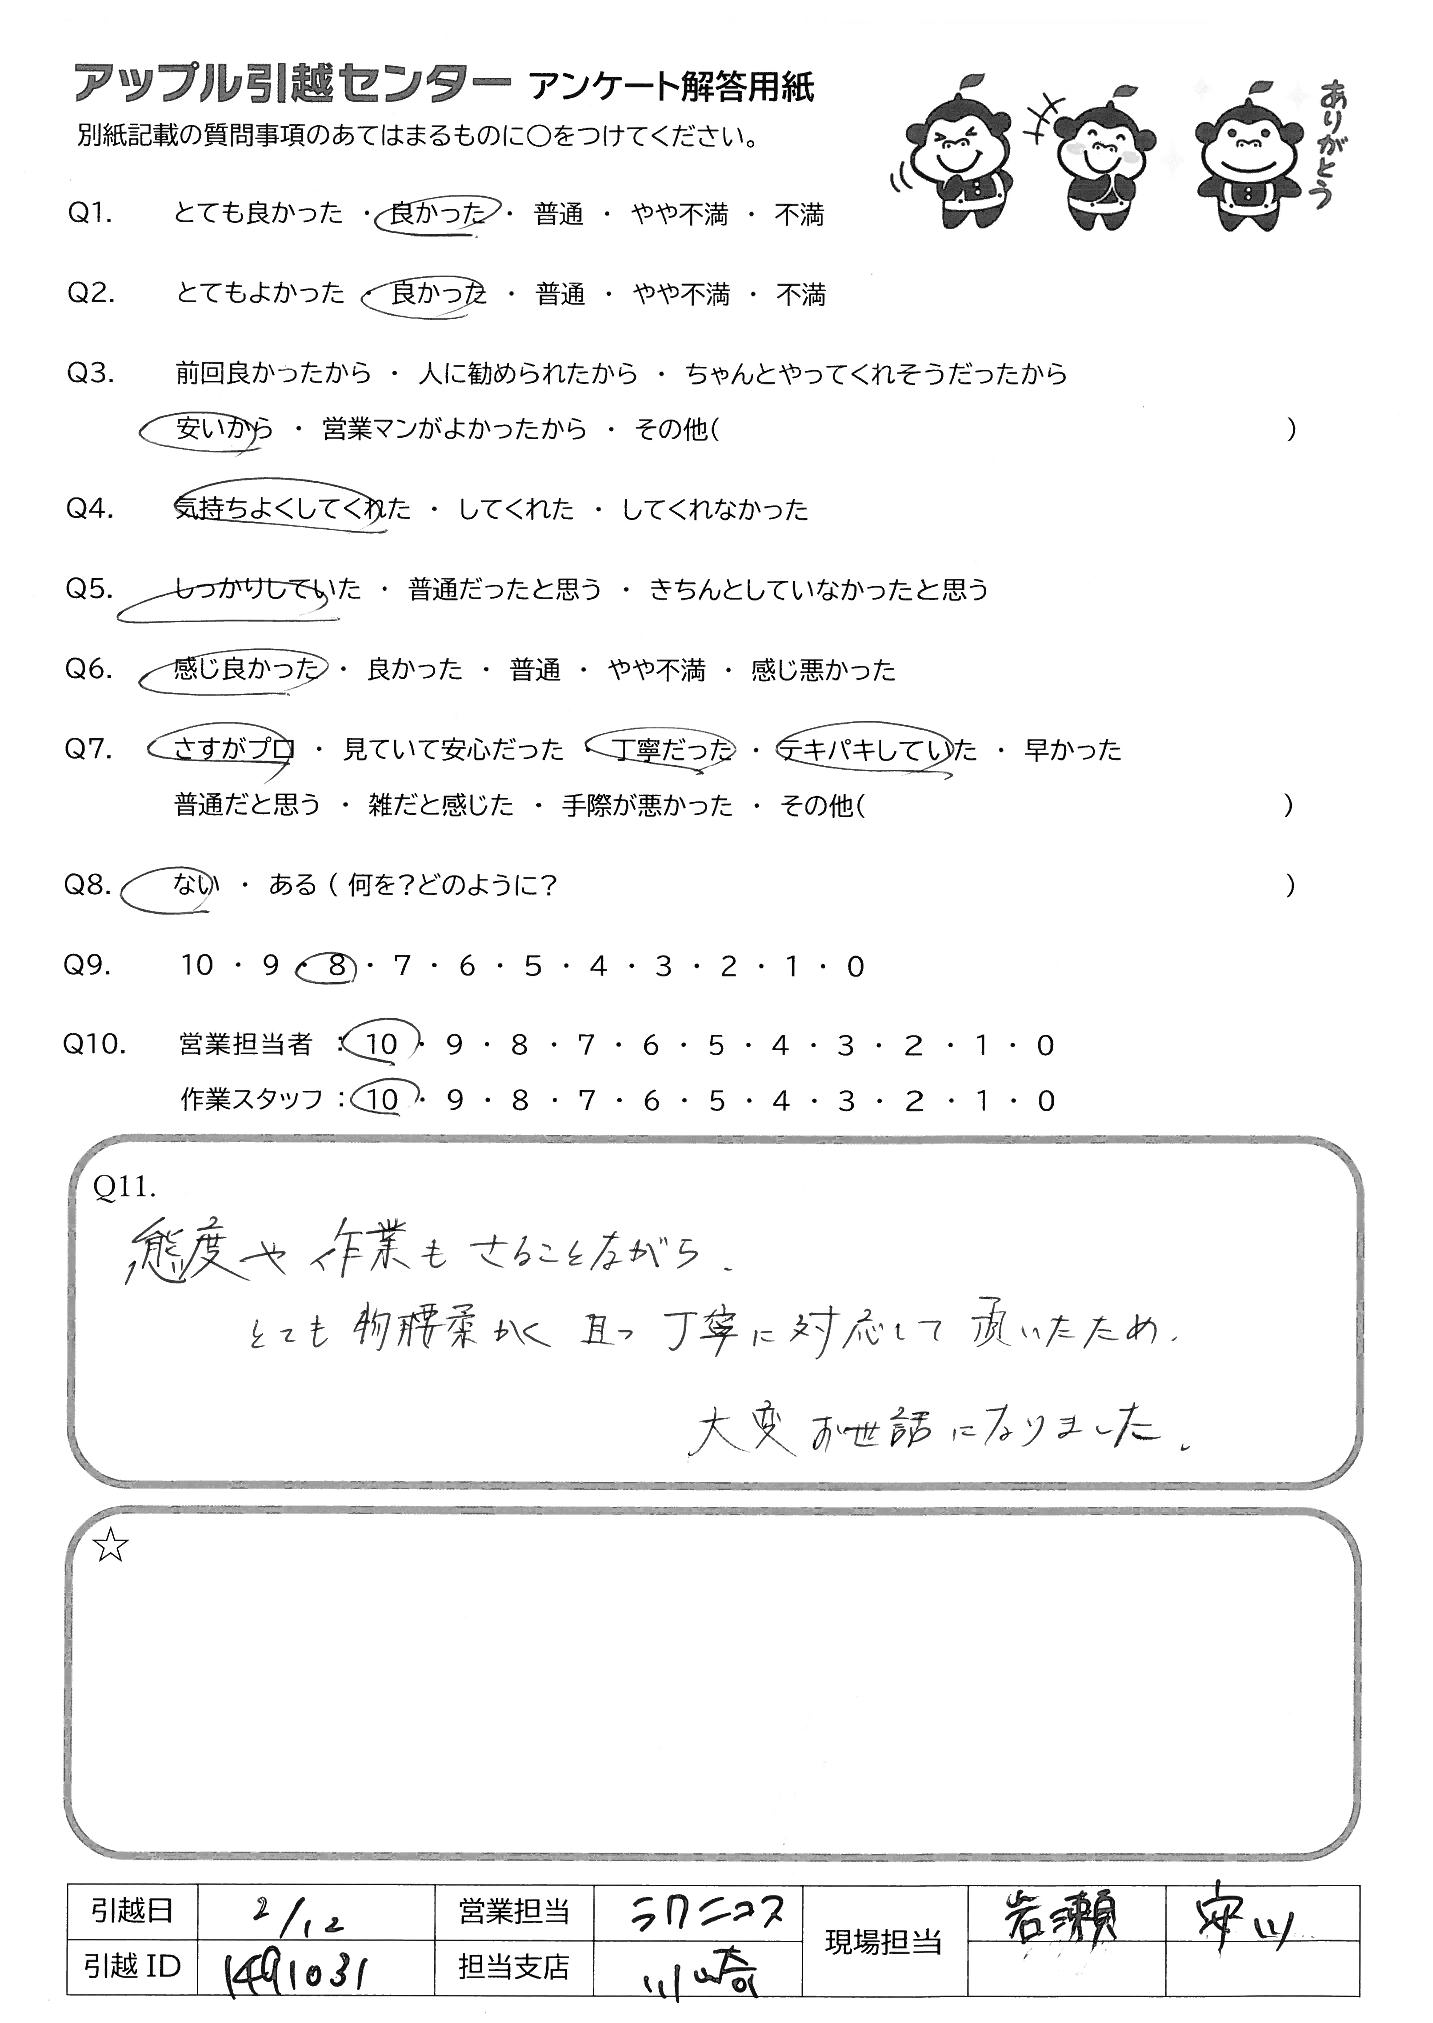 アップル引越センター アンケート解答用紙
ありがとう
別紙記載の質問事項のあてはまるものに〇をつけてください。
Q1. とても良かった ・ 良かった ・ 普通 ・ やや不満 ・ 不満
Q2. とてもよかった ・ 良かった ・ 普通 ・ やや不満 ・ 不満
Q3. 前回良かったから ・ 人に勧められたから ・ ちゃんとやってくれそうだったから
安いから ・ 営業マンがよかったから ・ その他( )
Q4. 気持ちよくしてくれた ・ してくれた ・ してくれなかった
Q5. しっかりしていた ・ 普通だったと思う ・ きちんとしていなかったと思う
Q6. 感じ良かった ・ 良かった ・ 普通 ・ やや不満 ・ 感じ悪かった
Q7. さすがプロ ・ 見ていて安心だった ・ 丁寧だった ・ テキパキしていた ・ 早かった
普通だと思う ・ 雑だと感じた ・ 手際が悪かった ・ その他( )
Q8. ない ・ ある ( 何を?どのように? )
Q9. 10 ・ 9 ・ 8 ・ 7 ・ 6 ・ 5 ・ 4 ・ 3 ・ 2 ・ 1 ・ 0
Q10. 営業担当者 : 10 ・ 9 ・ 8 ・ 7 ・ 6 ・ 5 ・ 4 ・ 3 ・ 2 ・ 1 ・ 0
作業スタッフ : 10 ・ 9 ・ 8 ・ 7 ・ 6 ・ 5 ・ 4 ・ 3 ・ 2 ・ 1 ・ 0
Q11.
態度や作業もさることながら、
とても物腰柔かく且つ丁寧に対応して頂いたため、
大変お世話になりました。
☆
引越日 2/12 営業担当 ラワニコス 現場担当 岩瀬 安川
引越 ID 1491031 担当支店 川崎